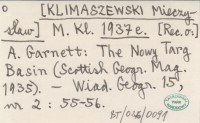 [KLIMASZEWSKI Mieczy-
sław] M. Kl. 1937 e. [Rec. o:]
A. Garnett: The Nowy Targ
Basin (Scottish Geogr. Mag.
1935). – Wiad. Geogr. 15,
nr 2 : 55-56.
BT/026/0091